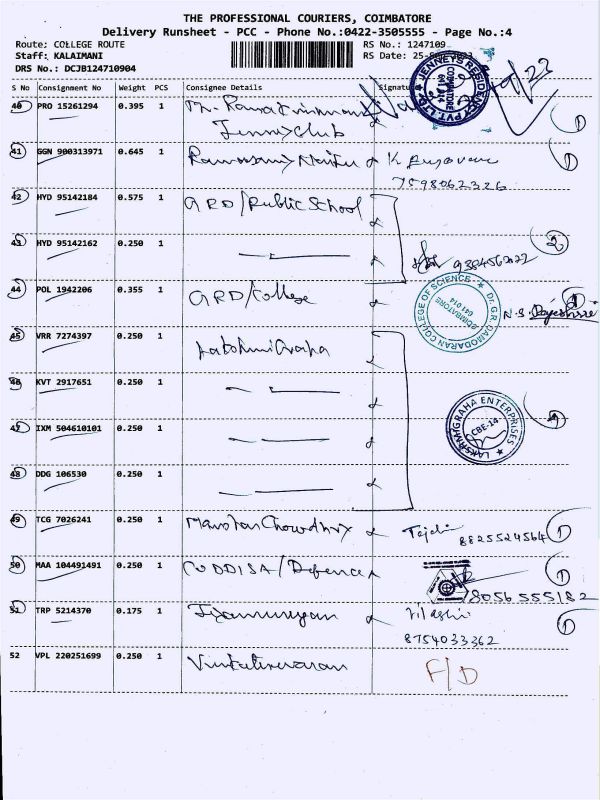 THE PROFESSIONAL COURIERS, COIMBATORE
Delivery Runsheet - PCC - Phone No.:0422-3505555 - Page No.:4
Route: COLLEGE ROUTE RS No.: 1247109
Staff: KALAIMANI RS Date: 25-
DRS No.: DCJB124710904
S No Consignment No Weight PCS Consignee Details Signature
40 PRO 15261294 0.395 1
Jenny Club
JENNEYS RESIDENCY PVT. LTD. COIMBATORE 641 014
1
41 GGN 900313971 0.645 1
7598062326
1
42 HYD 95142184 0.575 1 GRD/Public School
43 HYD 95142162 0.250 1 9384562022
2
44 POL 1942206 0.355 1 GRD/College N.S. Rajeshwari
Dr. G.R. DAMODARAN COLLEGE OF SCIENCE COIMBATORE 641 014
45 VRR 7274397 0.250 1
46 KVT 2917651 0.250 1
LAKSHMIGRAHA ENTERPRISES CBE-14
4
47 IXM 504610101 0.250 1
48 DDG 106530 0.250 1
49 TCG 7026241 0.250 1 Manohar Chowdhry
8825524564 1
50 MAA 104491491 0.250 1 CODDISA/Defence
8056 555182 1
51 TRP 5214370 0.175 1
8754033362 1
52 VPL 220251699 0.250 1 Venkateswaran F/D